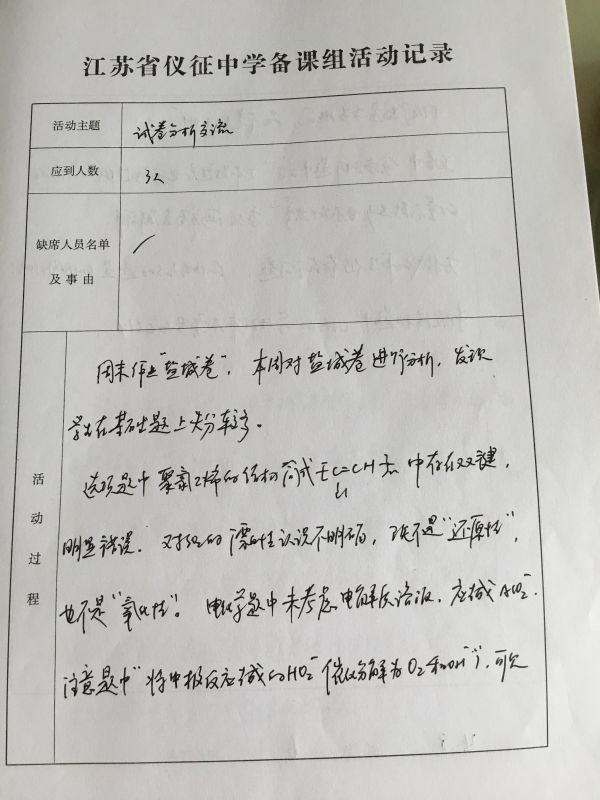 江苏省仪征中学备课组活动记录
活动主题
试卷分析交流
应到人数
3人
缺席人员名单
及事由
/
活动过程
周末作业"盐城卷"。本周对盐城卷进行分析，发现
学生在基础题上失分较多。
选项题中聚氯乙烯的结构简式 [C=CH]n 中存在双键，
Cl
明显错误。对 的漂白性认识不明确，既不是"还原性"，
也不是"氧化性"。电化学题中未考虑电解质溶液，应生成 AlO2-.
注意题中"将电极反应生成的HO2-催化分解为O2和OH-"，可